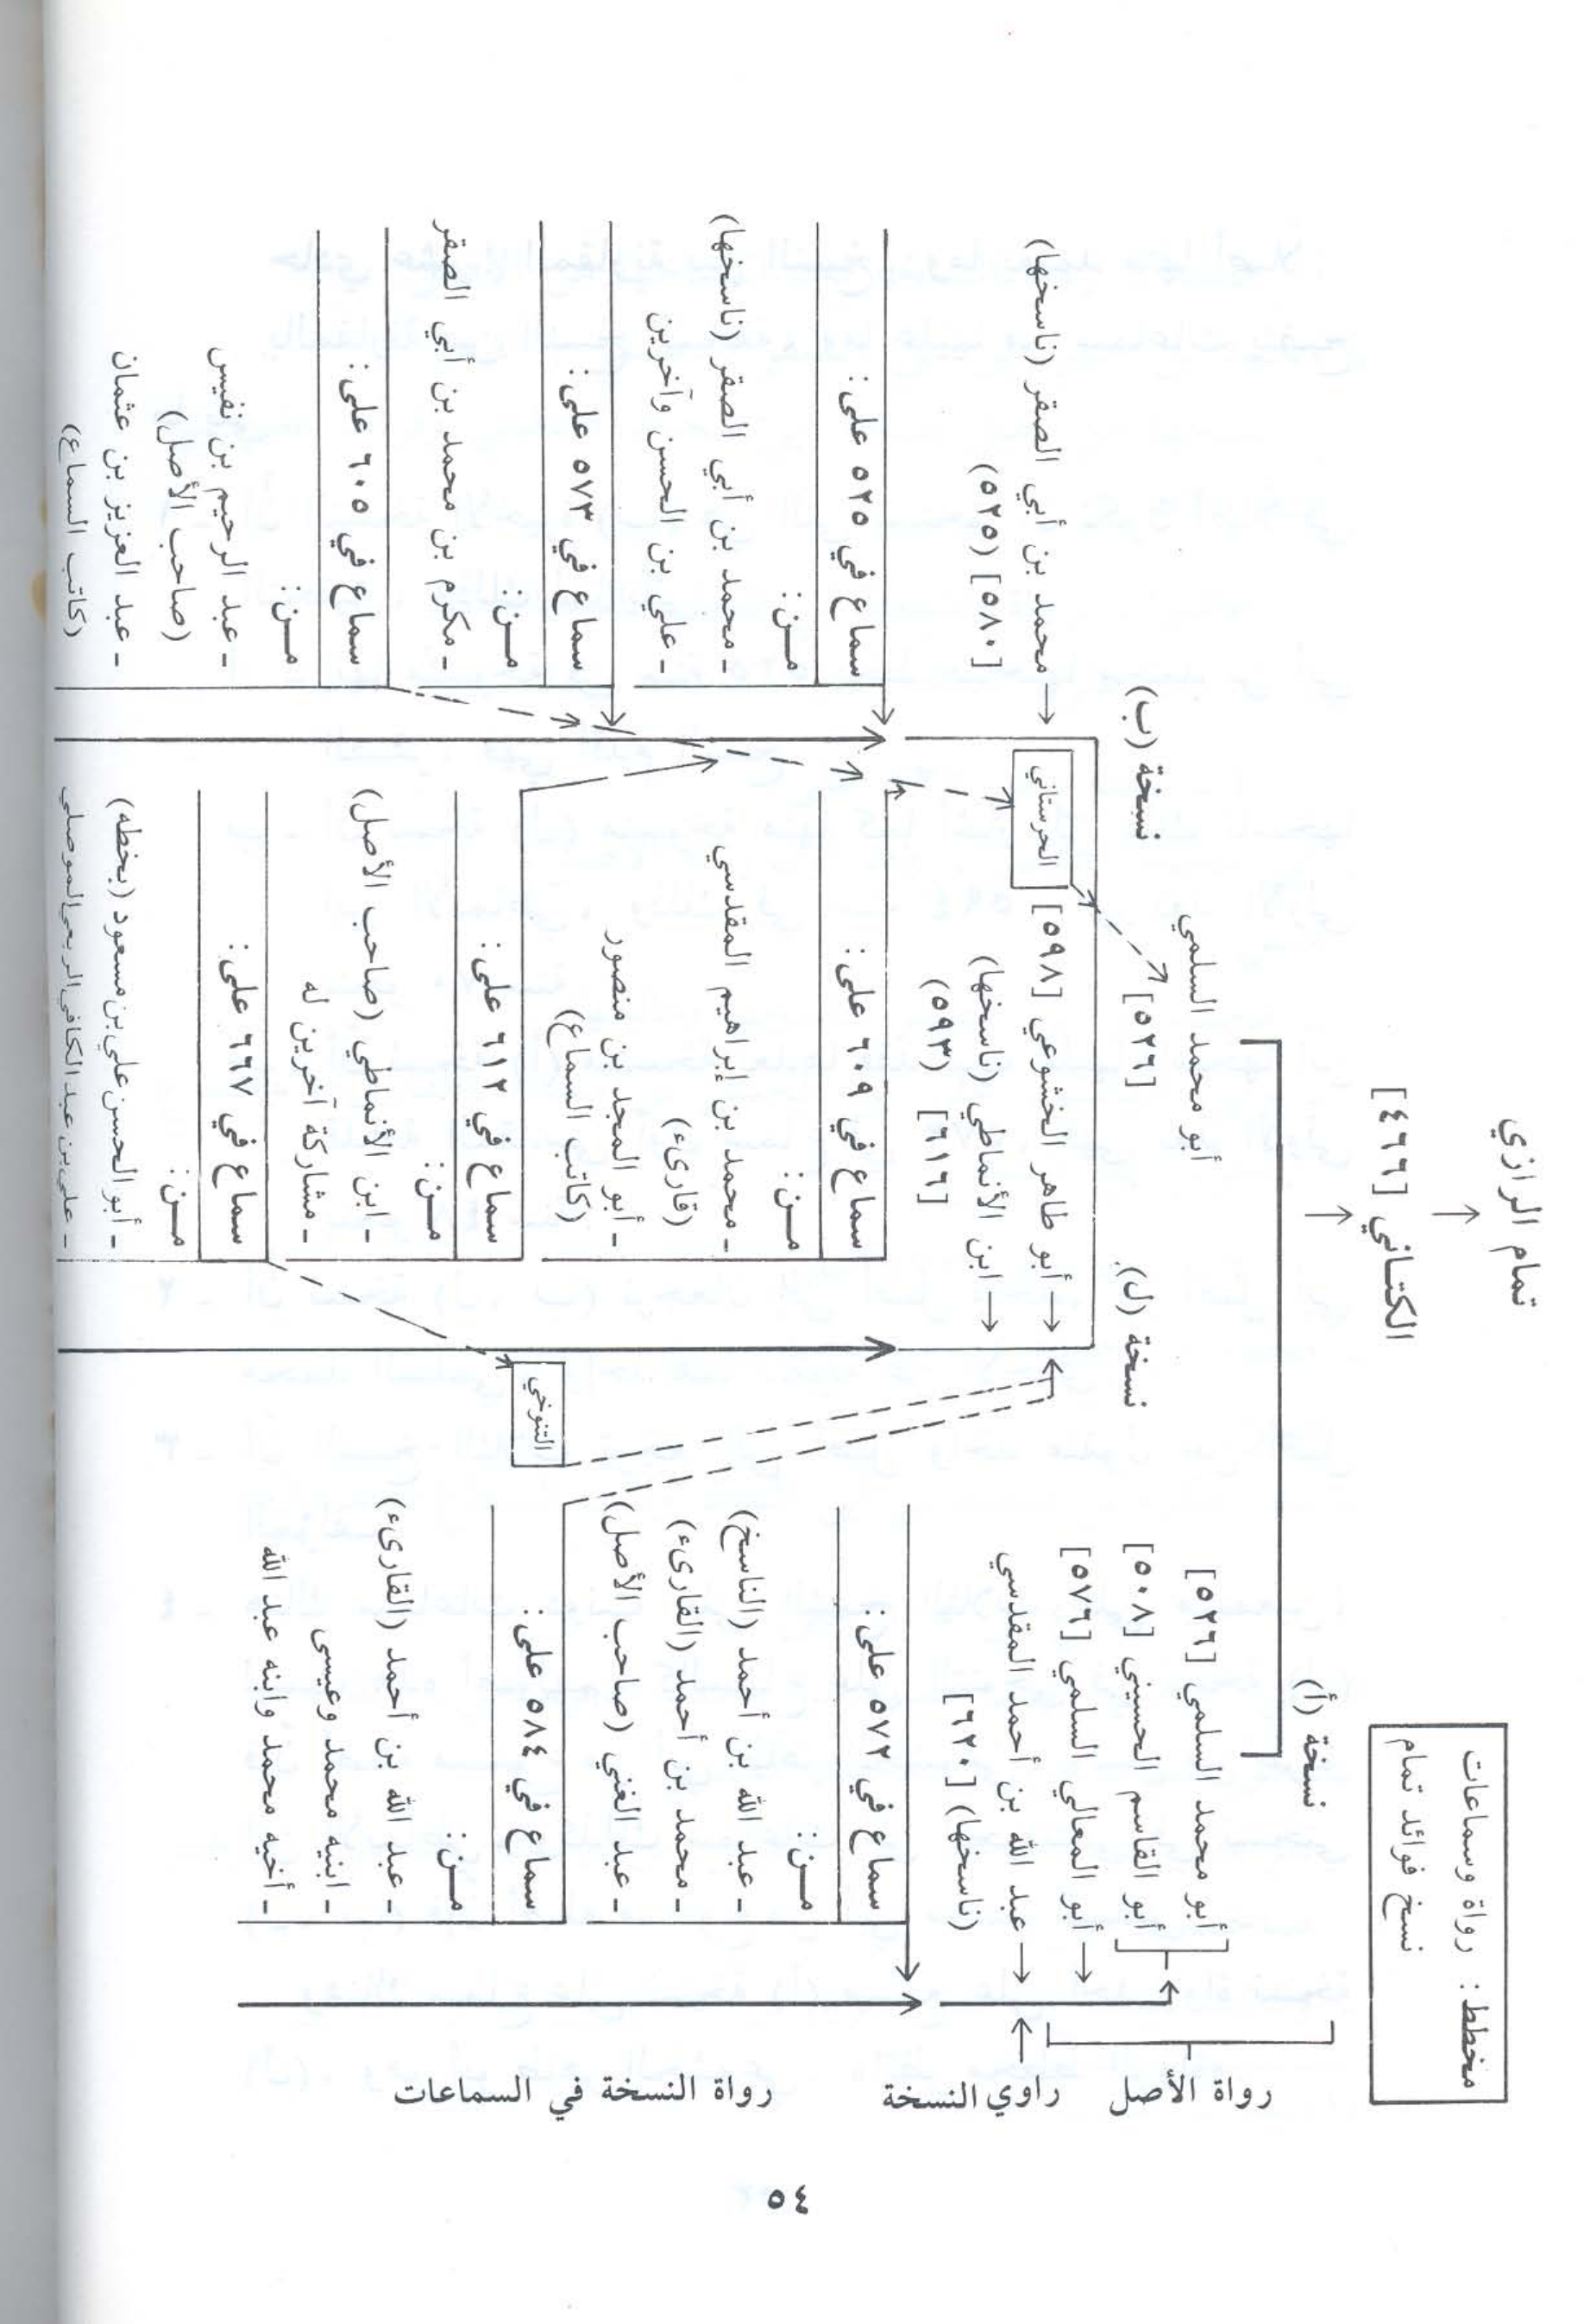 مخطط : رواة وسماعات
نسخ فوائد تمام
تمام الرازي
الكتاني [٤٦٦]
نسخة (أ)
أبو محمد السلمي [٥٢٦]
أبو القاسم الحسيني [٥٠٨]
أبو المعالي السلمي [٥٧٦]
عبد الله بن أحمد المقدسي
(ناسخها) [٦٢٠]
سماع في ٥٧٢ على:
مـن:
ـ عبد الله بن أحمد (الناسخ)
ـ محمد بن أحمد (القارىء)
ـ عبد الغني (صاحب الأصل)
سماع في ٥٨٤ على:
مـن:
ـ عبد الله بن أحمد (القارىء)
ـ ابنيه محمد وعيسى
ـ أخيه محمد وابنه عبد الله
أبو محمد السلمي
[٥٢٦]
نسخة (ل)
ـ أبو طاهر الخشوعي [٥٩٨]
ابن الأنماطي (ناسخها)
(٥٩٣) [٦١٦]
الحرستاني
سماع في ٦٠٩ على:
مـن:
ـ محمد بن إبراهيم المقدسي
(قارىء)
ـ أبو المجد بن منصور
(كاتب السماع)
سماع في ٦١٢ على:
مـن:
ـ ابن الأنماطي (صاحب الأصل)
ـ مشاركة آخرين له
التنوخي
سماع في ٦٦٧ على:
مـن:
ـ أبو الحسن علي بن مسعود (بخطه)
ـ علي بن عبد الكافي الربعي الموصلي
نسخة (ب)
محمد بن أبي الصقر (ناسخها)
(٥٢٥) [٥٨٠]
سماع في ٥٢٥ على:
مـن:
ـ محمد بن أبي الصقر (ناسخها)
ـ علي بن الحسن وآخرين
سماع في ٥٧٣ على:
مـن:
ـ مكرم بن محمد بن أبي الصقر
سماع في ٦٠٥ على:
مـن:
ـ عبد الرحيم بن نفيس
(صاحب الأصل)
ـ عبد العزيز بن عثمان
(كاتب السماع)
رواة الأصل
راوي النسخة
رواة النسخة في السماعات
٥٤